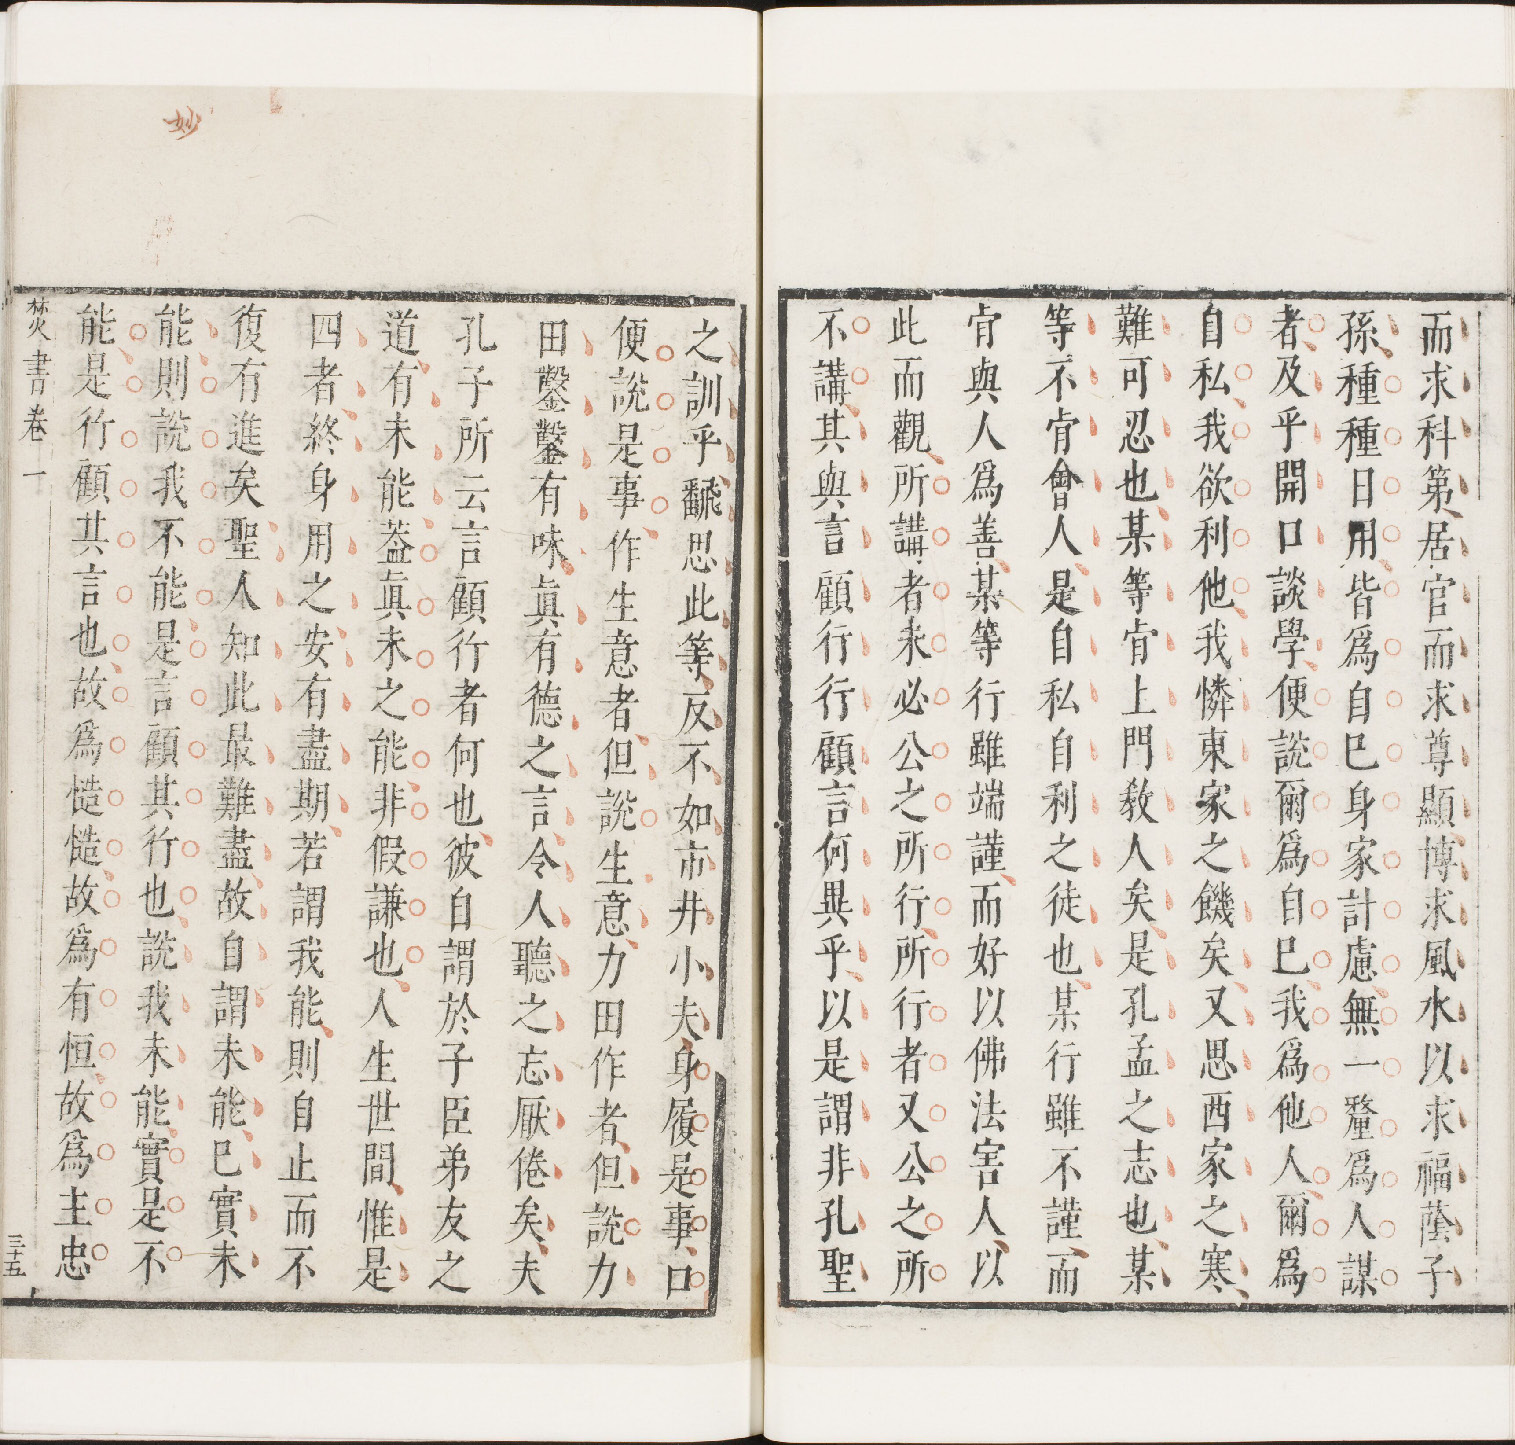 而求科第居官而求尊顯博求風水以求福蔭子
孫種種日用皆爲自巳身家計慮無一釐爲人謀
者及乎開口談學便說爾爲自巳我爲他人爾爲
自私我欲利他我憐東家之饑矣又思西家之寒
難可忍也某等肯上門教人矣是孔孟之志也某
等不肯會人是自私自利之徒也某行雖不謹而
肯與人爲善某等行雖端謹而好以佛法害人以
此而觀所講者未必公之所行所行者又公之所
不講其與言顧行行顧言何異乎以是謂非孔聖
之訓乎飜思此等反不如市井小夫身履是事口
便說是事作生意者但說生意力田作者但說力
田鑿鑿有味眞有德之言令人聽之忘厭倦矣夫
孔子所云言顧行者何也彼自謂於子臣弟友之
道有未能葢眞未之能非假謙也人生世間惟是
四者終身用之安有盡期若謂我能則自止而不
復有進矣聖人知此最難盡故自謂未能巳實未
能則說我不能是言顧其行也說我未能實是不
能是行顧其言也故爲慥慥故爲有恒故爲主忠
焚書卷一
三十五
妙